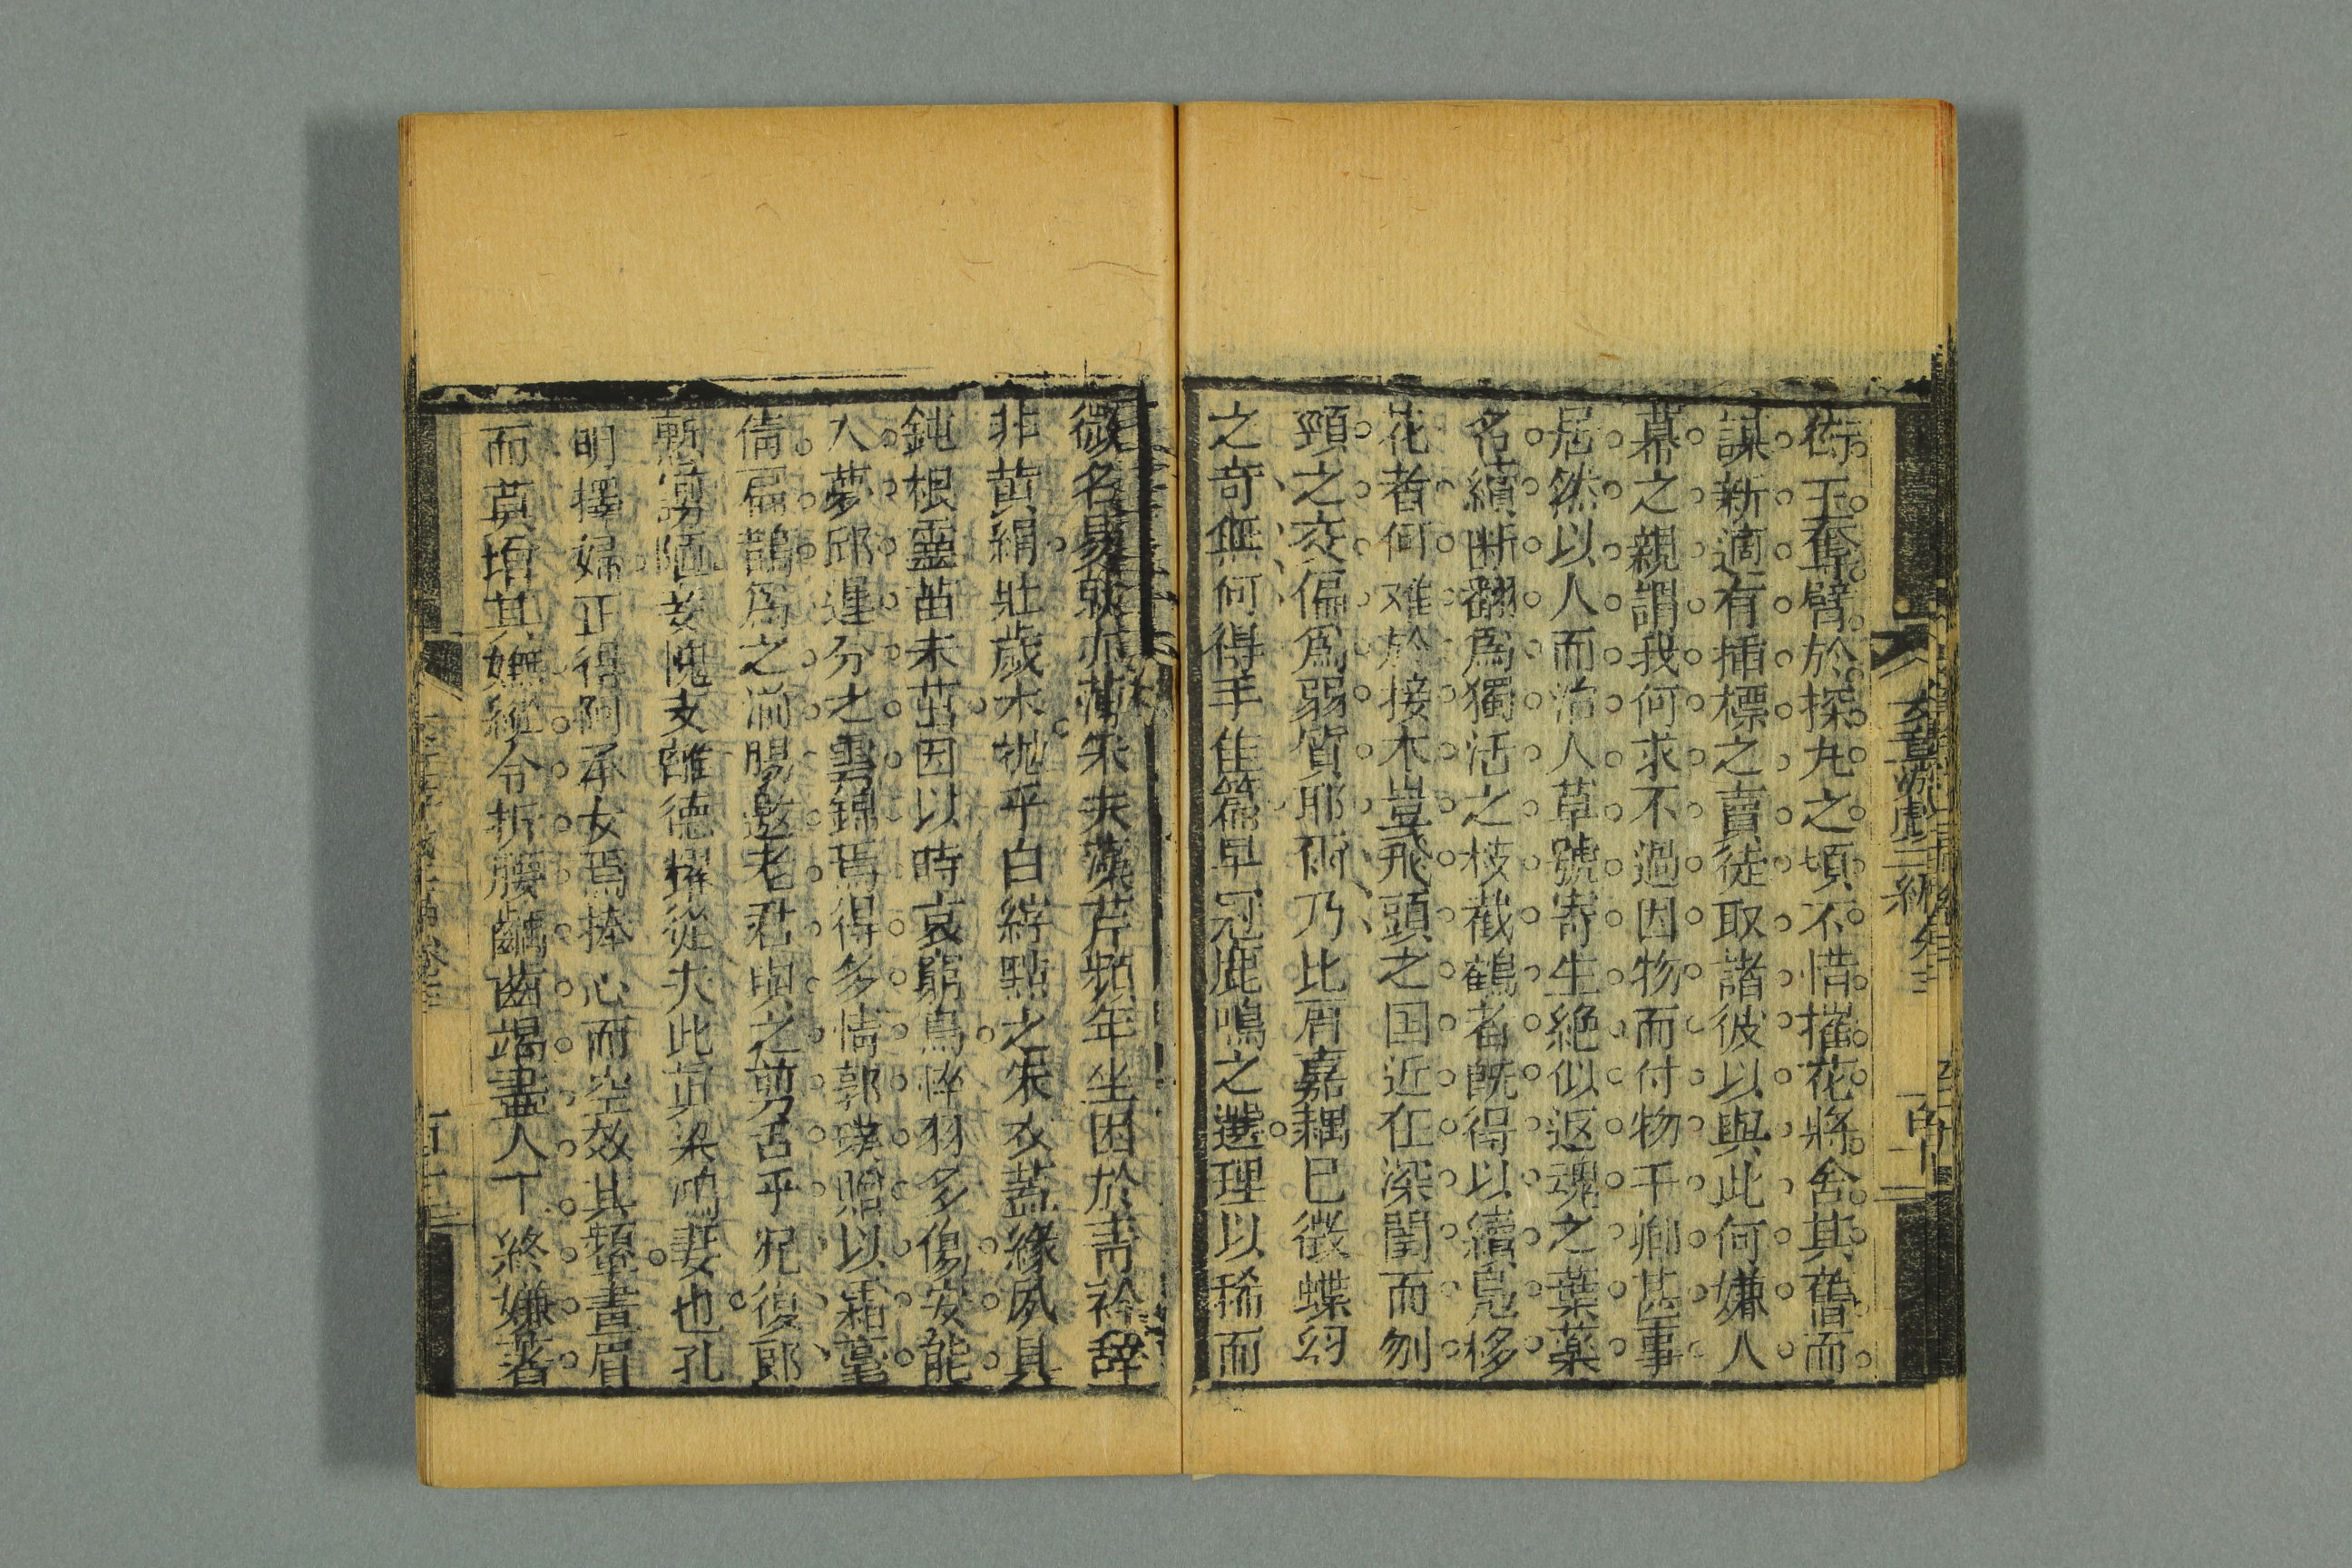 玉奪臂於探丸之頃不惜摧花將舍其舊而
謀新適有插標之賣徒取諸彼以與此何嫌人
幕之親謂我何求不過因物而付物干卿甚事
居然以人而治人草號寄生絶似返魂之葉藥
名續断翻爲獨活之枝截鶴者既得以續鳧移
花者何难於接木豈飛頭之国近在深閨而刎
頸之交偏爲弱質耶衲乃比眉嘉耦巳徴蝶幻
之奇無何得手佳篇早冠鹿鳴之選理以稀而
微名易
非黄絹壯歲未抛乎白紵點之朱衣蓋緣夙具
鈍根靈苗未茁因以時哀窮鳥悴羽多傷安能
入夢邱遲分之雲錦焉得多情郭璞贈以霜毫
倩扁鵲爲之湔腸邀老君與之剪舌乎況復郎
慚窮陋妾愧支離德擇從夫此眞梁鴻妻也孔
明擇婦正得阿承女焉捧心而空效其顰畫眉
而莫增其嫵縱令折腰齲齒竭盡人丁終嫌著
二編 卷三
百二